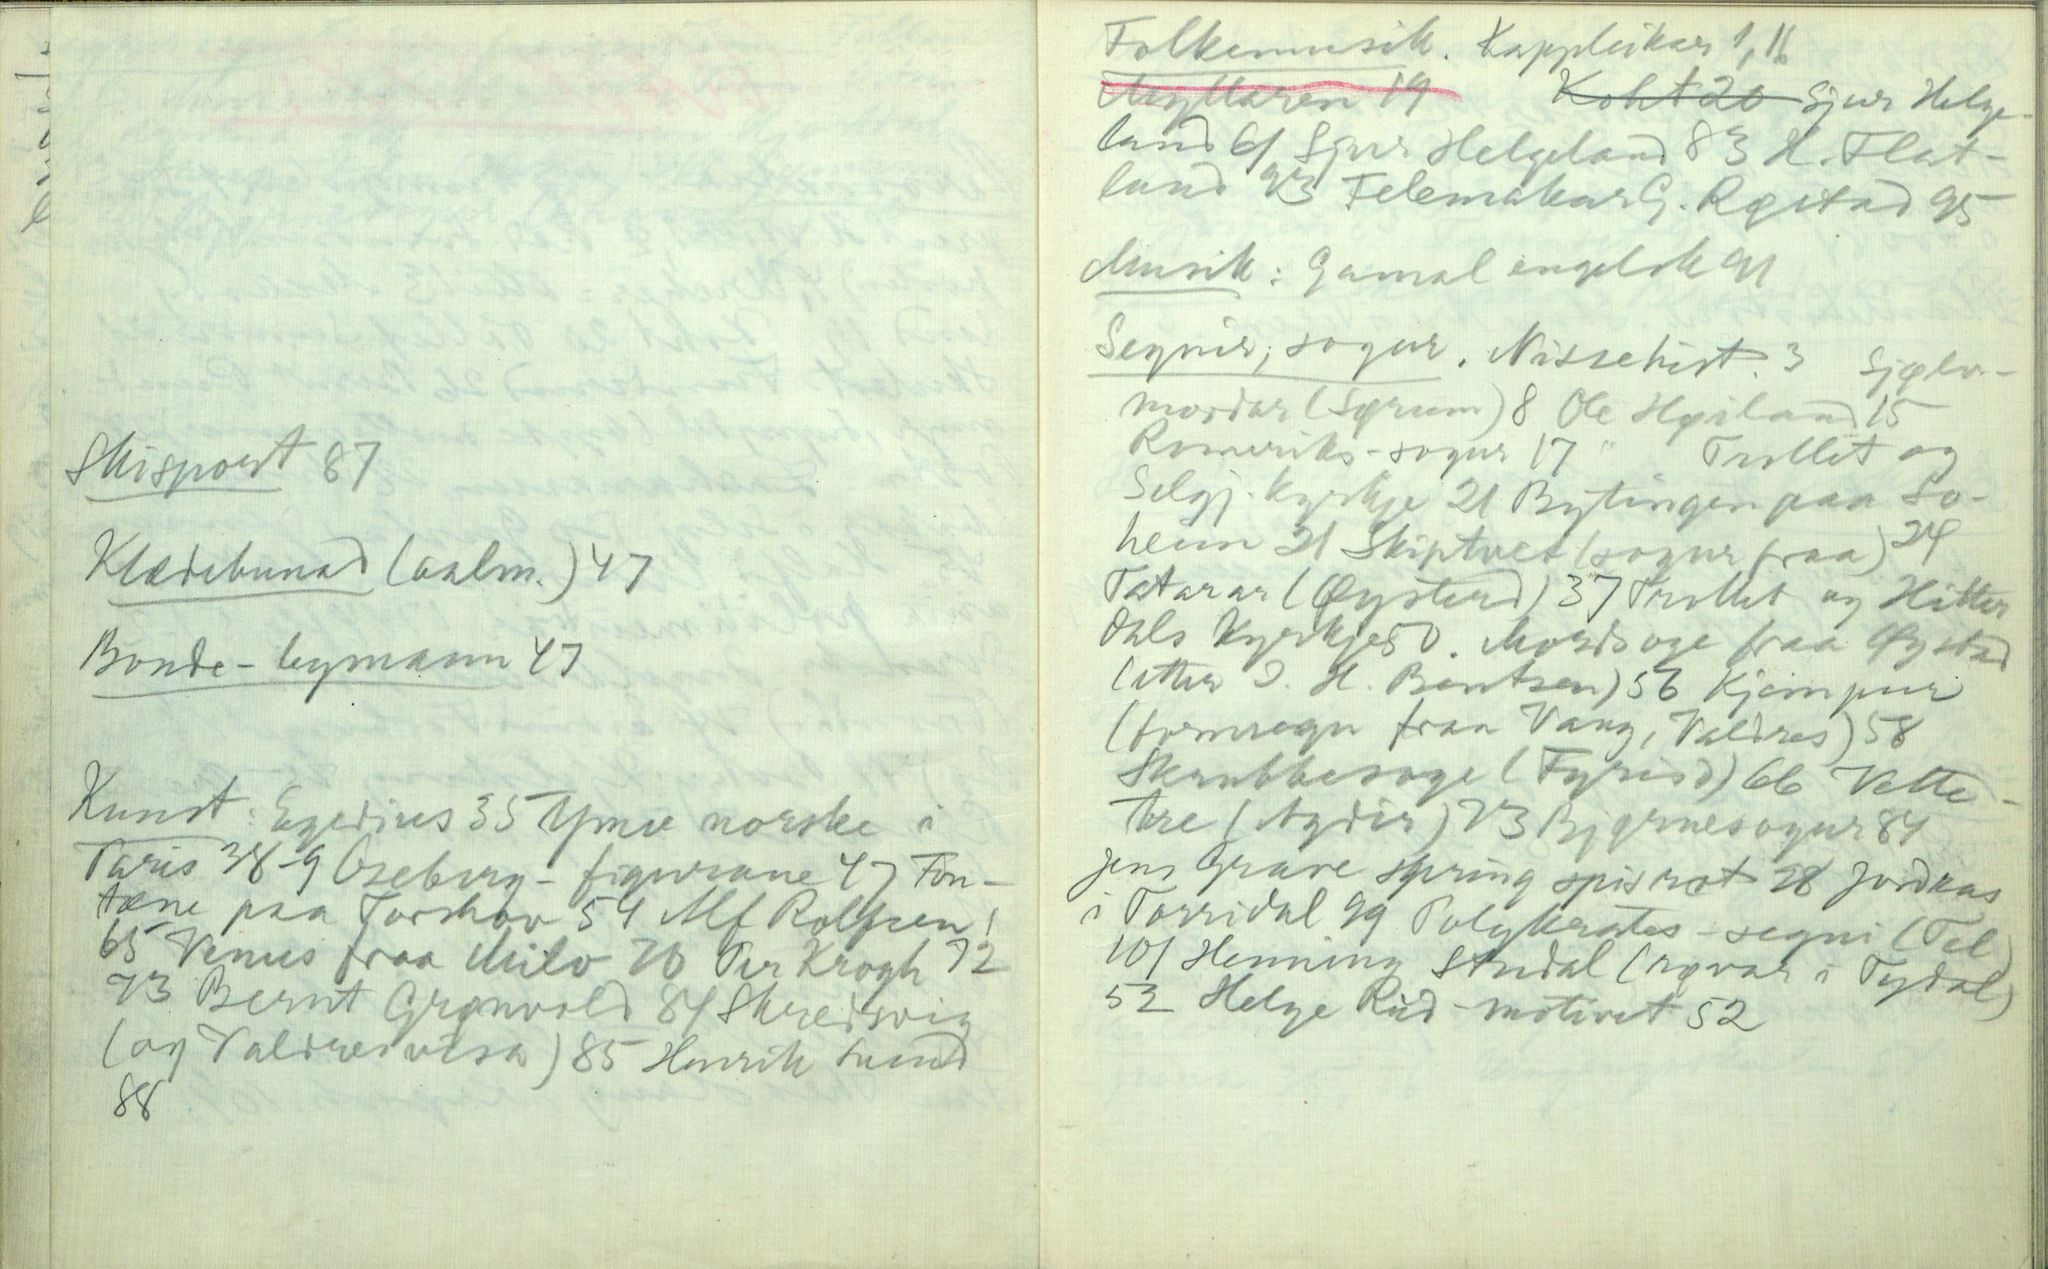 Skisport 87
Klædebunad (aalm.) 47
Bonde-bymann 47
Kunst: Egedius 35 Ymse norske i
Paris 38-9 Oseberg-figurane 47 Fon-
tæne paa Torshov 54 Alf Rolfsen
65 Venus fraa Milo 70 Per Krogh 72
73 Bernt Grønvold 84 Skredsvig
(og Valdresvisa) 85 Henrik Lund
88
Folkemusik. Kappleikar 1, 16
Myllaren 19 Koht 20 Sjur Helge-
land 61 Sjur Helgeland 83 H. Flat-
land 93 Felemakar G. Røstad 95
Musik: Gamal engelsk 91
Segnir, sogur. Nissehist. 3 Sjølv-
mordar (Sørum) 8 Ole Høiland 15
Romeriks-sogur 17 Trollet og
Selgj. kyrkje 21 Bytingen paa So-
heim 21 Skiptvet (sogur fraa) 24
Tatarar (Øysterd) 37 Trollet og Hitter
dals kyrkje 50. Mordsoge fraa Øystrd
(etter S. H. Bentsen) 56 Kjempur
(fornsegn fraa Vang, Valdres) 58
Skrubbesoge (Fyrisd) 66 Vette-
tre (Agdir) 73 Bjørnesogur 84
Jens Grave spring spisrot 28 Jordras
i Torridal 99 Polykrates-segni (Tel)
101 Henning Stndal (røvar i Tydal)
52 Helge Rud-motivet 52